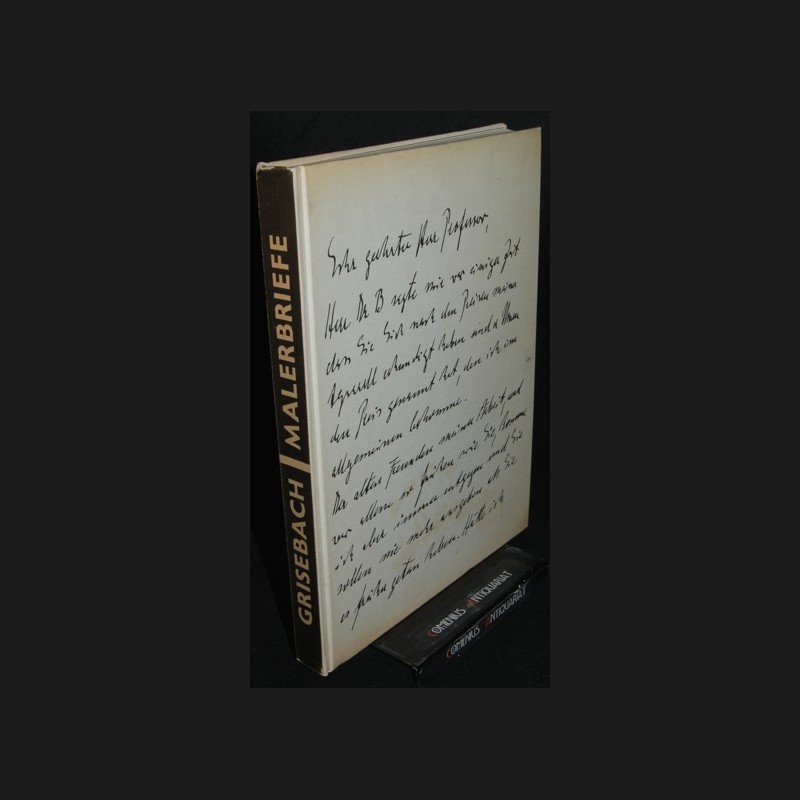 GRISEBACH | MALERBRIEFE
Sehr geehrter Herr Professor,
Herr Dr B sagte mir vor einiger Zeit
dass Sie Sich nach den Preisen meiner
Aquarelle erkundigt haben und er Ihnen
den Preis genannt hat, den ich im
allgemeinen bekomme.
Da alten Freunden meiner Arbeit, und
vor allem so frühen wie Sie, komme
ich aber immer entgegen und Sie
sollen nie mehr ausgeben als Sie
es früher getan haben. Hätte ich
COMENIUS ANTIQUARIAT
COMENIUS ANTIQUARIAT